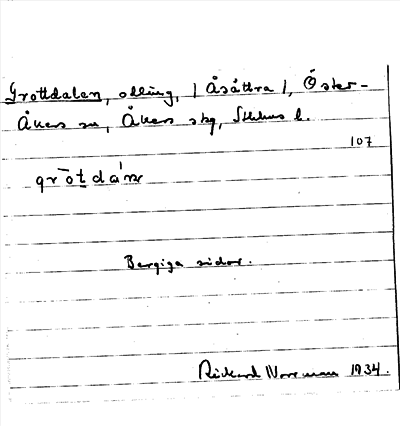 Grottdalen, odling, /Åsättra/, Öster-
Åkers sn, Åkers skg, Sthlms l.
107
grōtdán
Bergiga sidor.
Rickard Norrman 1934.